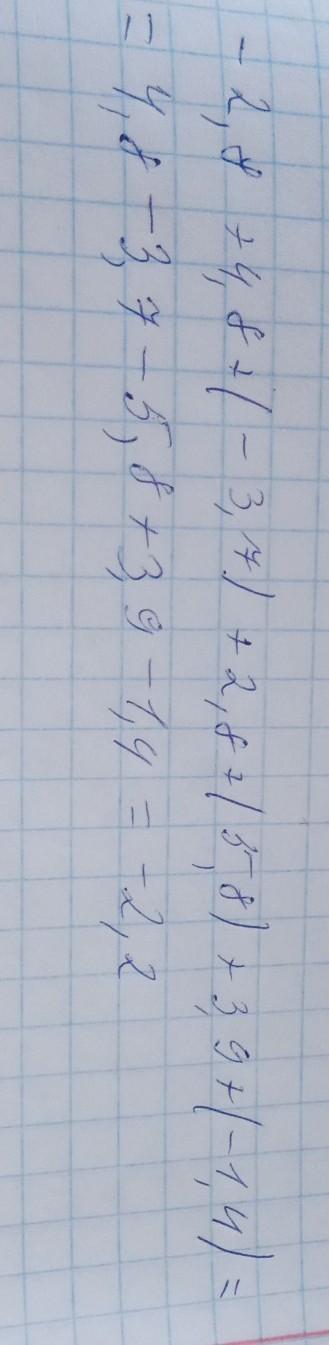 - 2,8 + 4,8 + ( - 3,7) + 2,8 + ( 5,8) + 3,9 + ( - 1,4) =
= 4,8 - 3,7 - 5,8 + 3,9 - 1,4 = - 2,2